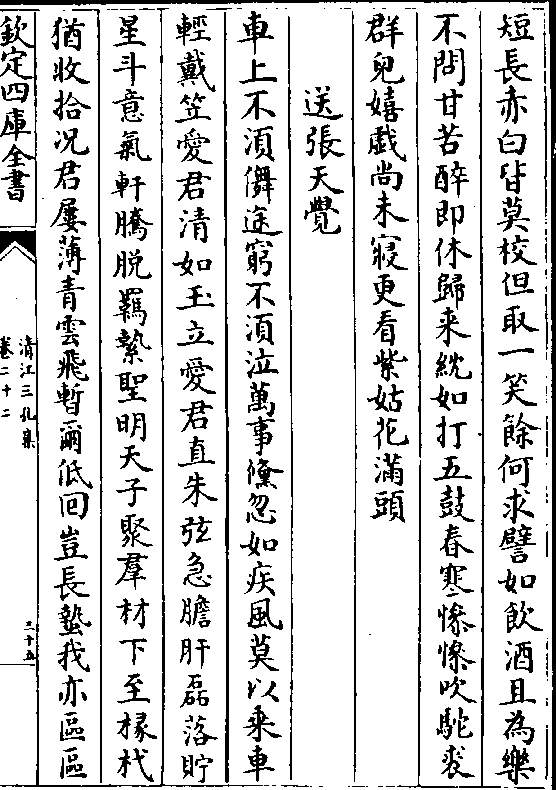 短長赤白皆莫校但取一笑餘何求譬如飲酒且為樂
不問甘苦醉即休歸来紞如打五鼓春寒慘慘吹駝裘
群兒嬉戲尚未寢更看紫姑花滿頭
送張天覺
車上不湏儛途窮不湏泣萬事儵忽如疾風莫以乘車
輕戴笠愛君清如玉立愛君直朱弦急膽肝磊落貯
星斗意氣軒騰脱羈縶聖明天子聚羣材下至椽杙
猶收拾况君屢薄青雲飛暫爾低回豈長蟄我亦區區
欽定四庫全書
清江三孔集
卷二十二
三十五